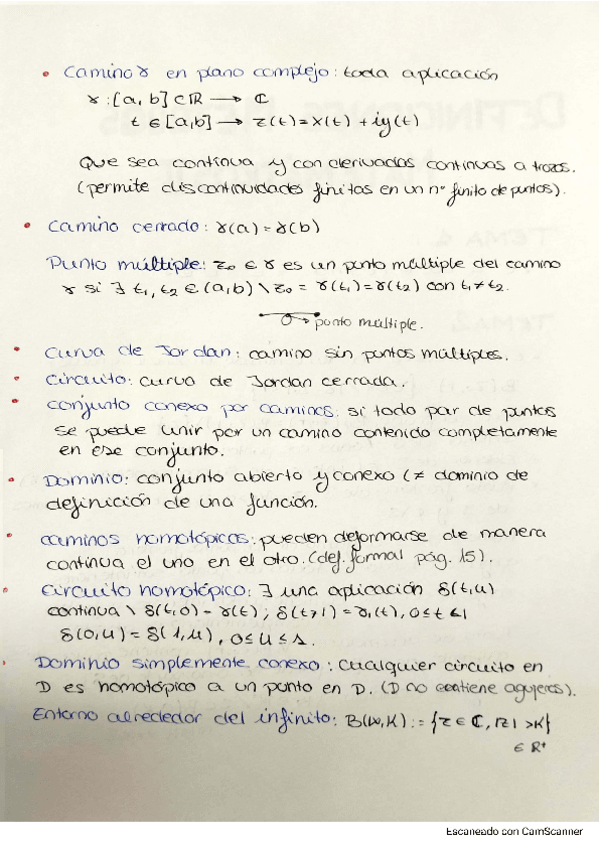 • Camino γ en plano complejo: toda aplicación
γ: [a, b] ⊂ ℝ → ℂ
t ∈ [a,b] → z(t) = x(t) + iy(t)
Que sea contínua y con derivadas continuas a trozos.
(permite discontinuidades finitas en un nº finito de puntos).
• Camino cerrado: γ(a) = γ(b)
Punto múltiple: z₀ ∈ γ es un punto múltiple del camino
γ si ∃ t₁, t₂ ∈ (a,b) \ z₀ = γ(t₁) = γ(t₂) con t₁ ≠ t₂.
→ punto múltiple.
• Curva de Jordan: camino sin puntos múltiples.
• Circuito: curva de Jordan cerrada.
• Conjunto conexo por caminos: si todo par de puntos
se puede unir por un camino contenido completamente
en ese conjunto.
• Dominio: conjunto abierto y conexo (≠ dominio de
definición de una función.
• caminos homotópicos: pueden deformarse de manera
continua el uno en el otro. (def. formal pág. 15).
• Circuito homotópico: ∃ una aplicación δ(t,u)
continua \ δ(t,0) = γ(t); δ(t,1) = γ₁(t), 0 ≤ t ≤ 1
δ(0,u) = δ(1,u), 0 ≤ u ≤ 1.
• Dominio simplemente conexo: Cualquier circuito en
D es homotópico a un punto en D. (D no contiene agujeros).
Entorno alrededor del infinito: B(∞,K) := {z ∈ ℂ, |z| > K}
∈ ℝ⁺
Escaneado con CamScanner